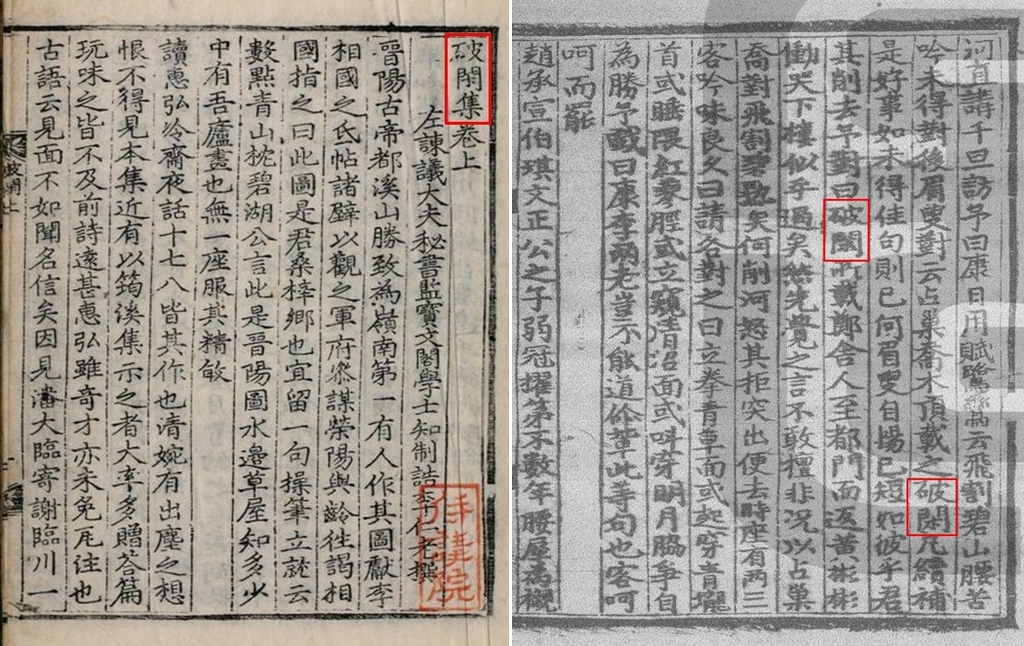 破閑集卷上
左諫議大夫秘書監寶文閣學士知制誥李仁老撰
晉陽古帝都溪山勝致為嶺南第一有人作其圖獻李
相國之氐帖諸壁以觀之軍府叅謀榮陽與齡徃謁相
國指之曰此圖是君桑梓鄉也宜留一句操筆立就云
數點青山枕碧湖公言此是晉陽圖水邊草屋知多少
中有吾廬畫也無一座服其精敏
讀惠弘冷齋夜話十七八皆其作也清婉有出塵之想
恨不得見本集近有以筠溪集示之者大率多贈答篇
玩味之皆不及前詩遠甚惠弘雖奇才亦未免瓦注也
古語云見面不如聞名信矣因見潘大臨寄謝臨川一
侍講院
河直講千旦訪予曰康日用賦鷺鷥云飛割碧山腰苦
吟未得對後眉叟對云占巢喬木頂載之破閑凡續補
是好事如未得佳句則已何眉叟自揚己短如彼乎君
其削去予對曰破閑所載鄭舍人至都門而返苦彬彬
慟哭下樓似乎過矣然先覺之言不敢擅非况以占巢
喬對飛割碧㸃矣何削河怒其拒突出便去時座有兩三
客吟味良久曰請各對之曰立拳青草面或起穿青壠
首或睡隈紅蓼脛或立窺淸沼面或叫穿明月脇爭自
為勝予戱曰康李兩老豈不能道你輩此等句也客呵
呵而罷
趙承宣伯琪文正公之子弱冠擢第不數年腰犀為襯